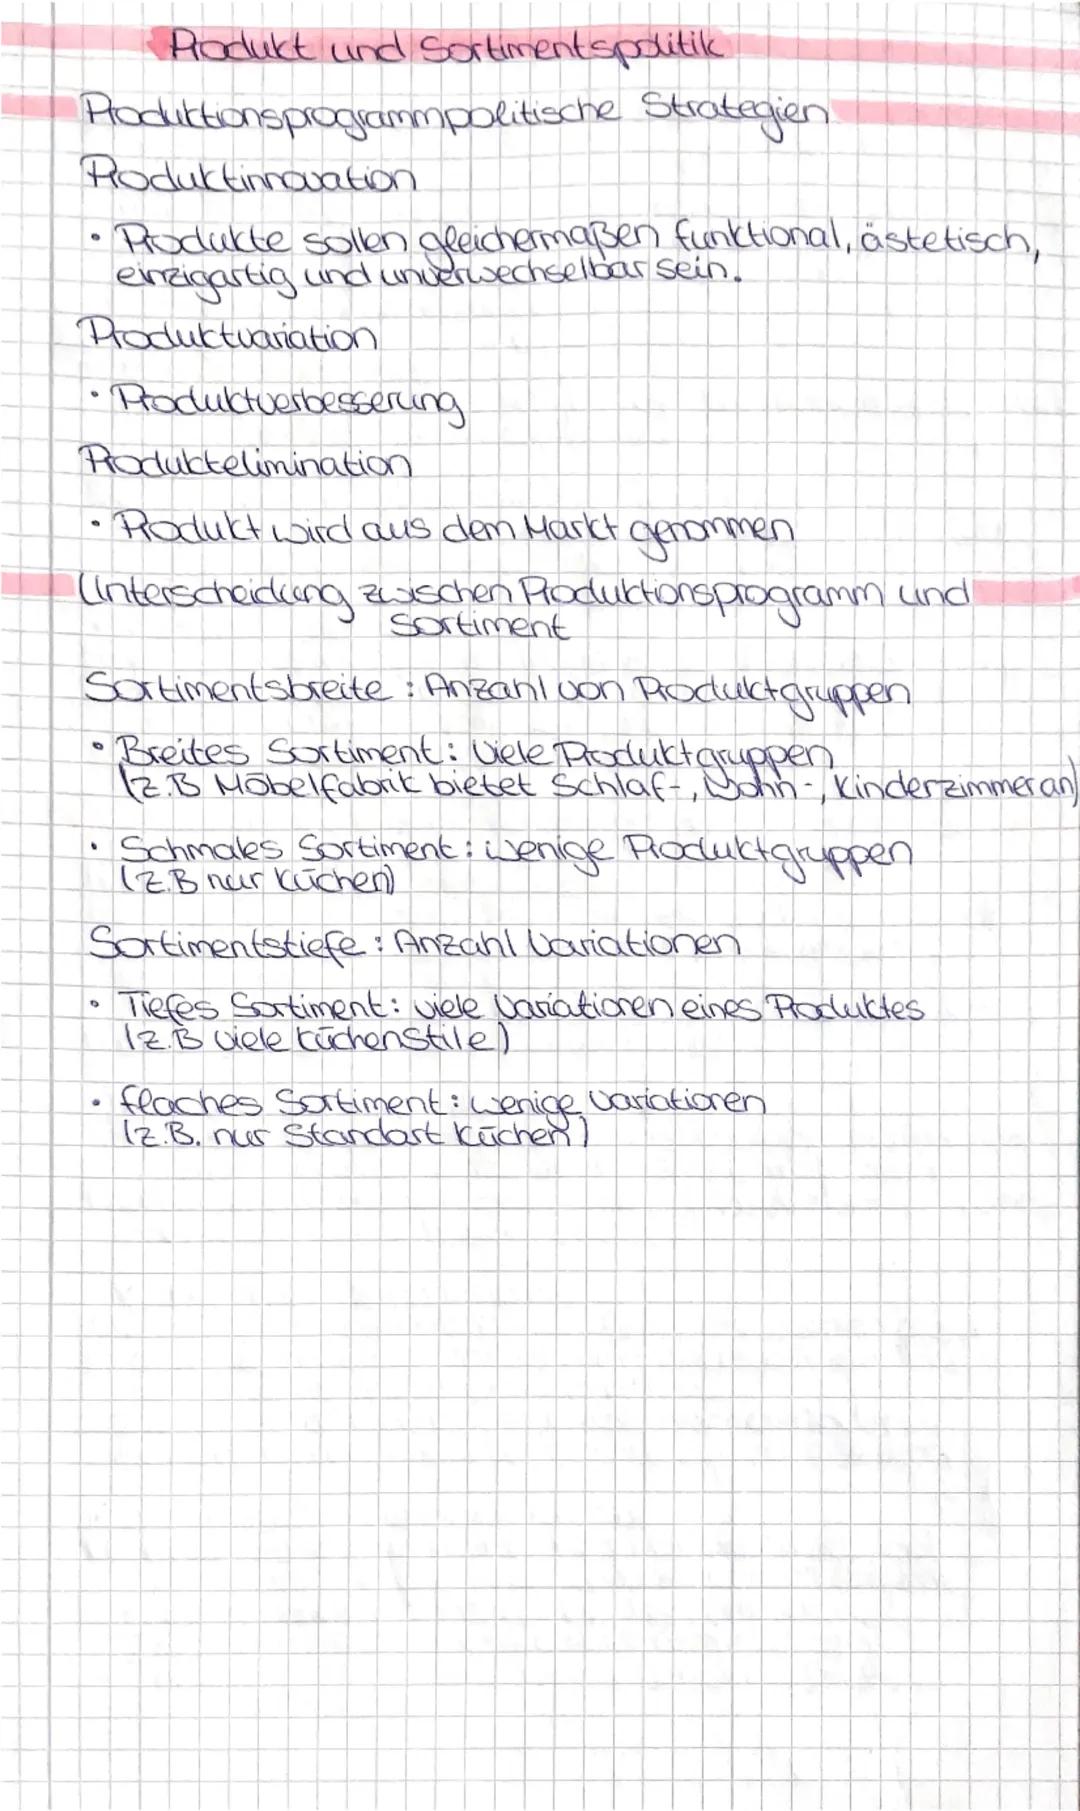 Produkt und Sortimentspolitik
Produktionsprogrammpolitische Strategien
Produktinnovation
• Produkte sollen gleichermaßen funktional, ästetisch,
einzigartig und unverwechselbar sein.
Produktvariation
• Produktverbesserung
Produktelimination
• Produkt wird aus dem Markt genommen
Unterscheidung zwischen Produktionsprogramm und
Sortiment
Sortimentsbreite : Anzahl von Produktgruppen
• Breites Sortiment : Viele Produktgruppen
(z.B Möbelfabrik bietet Schlaf-, Wohn-, Kinderzimmer an)
• Schmales Sortiment : Wenige Produktgruppen
(z.B nur Küchen)
Sortimentstiefe : Anzahl Variationen
• Tiefes Sortiment : viele Variationen eines Produktes
(z.B viele Küchenstile)
• flaches Sortiment : wenige Variationen
(z.B. nur Standart Küchen)